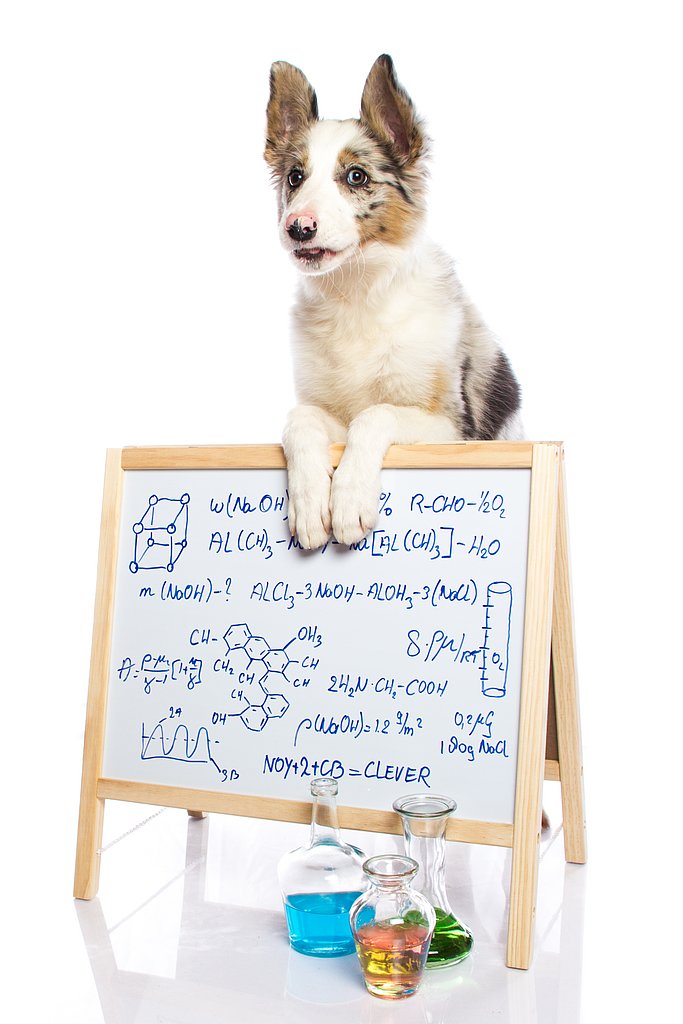 w(NaOH) % R-CHO-½O₂
AL(CH)₃- Na[AL(CH)₃]-H₂O
m(NaOH)-? ALCL₃-3NaOH-ALOH₃-3(NaCl)
CH- OH₃
CH₂ CH CH
CH
OH
δ·Pμ/RT O₂
2H₂N·CH₂-COOH
ρ(NaOH)=1.2 g/m²
0,2μG
190g NaCl
2A
3B
NOY+2+CB=CLEVER